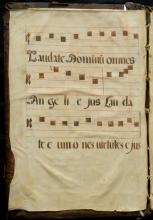 Laudate Dominũ omnes
An ge li e jus Lau da
te e um o nes virtutes ejus